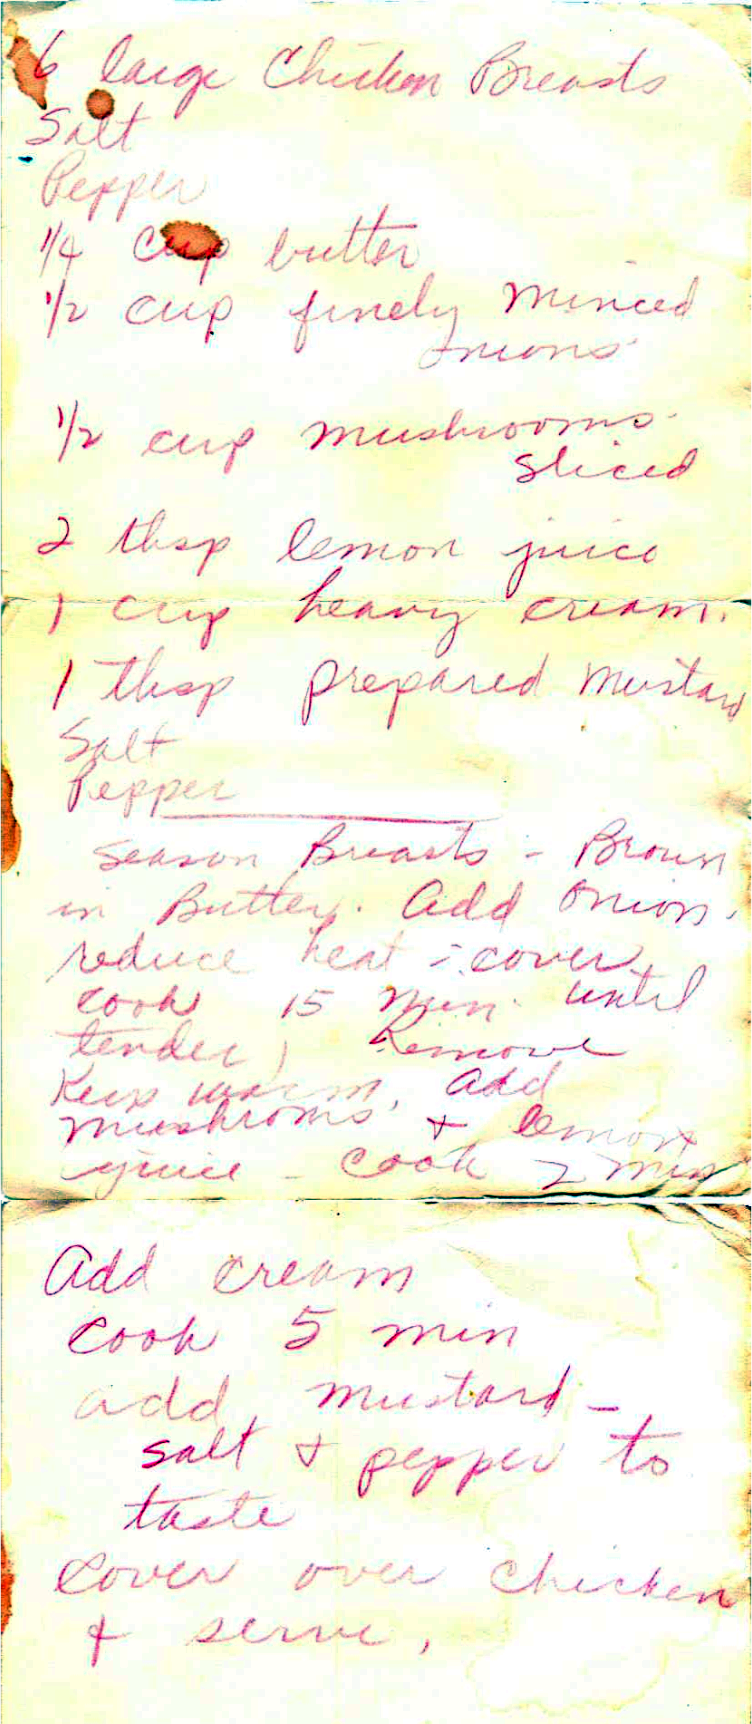 6 large Chicken Breasts
Salt
Pepper
1/4 cup butter
1/2 cup finely Minced
onions
1/2 cup mushrooms
sliced
2 tbsp lemon juice
1 cup heavy cream.
1 tbsp prepared Mustard
Salt
Pepper
Season Breasts - Brown
in Butter. Add Onion.
reduce heat - cover
cook 15 min. until
tender, Remove
Keep warm. Add
mushroms & lemon
juice - cook 2 min
Add cream
cook 5 min
add mustard -
salt & pepper to
taste
Cover over chicken
& serve.